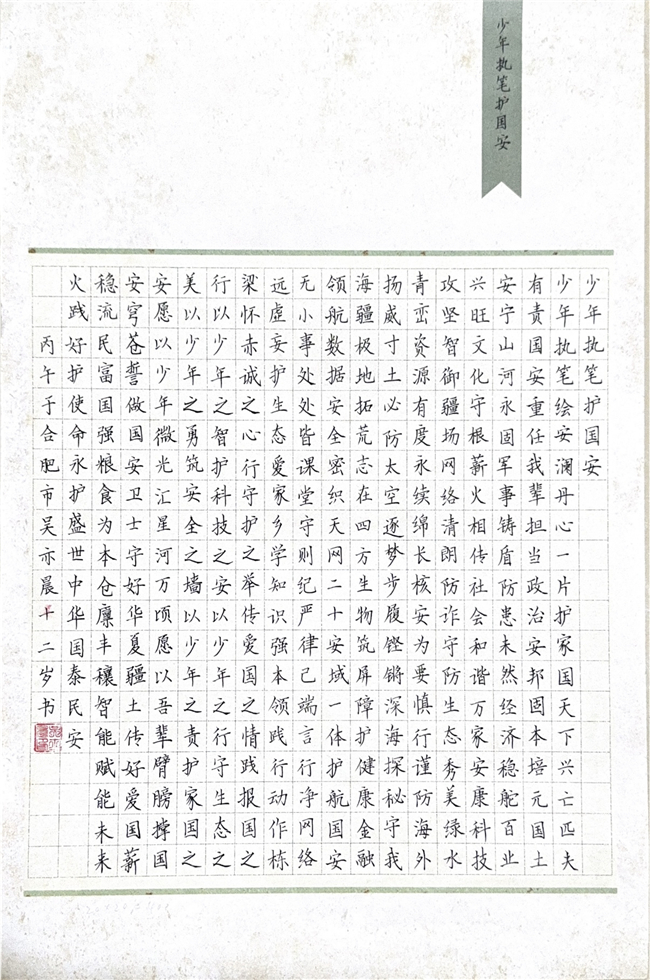 少年执笔护国安
少年执笔护国安
少年执笔绘安澜丹心一片护家国天下兴亡匹夫
有责国安重任我辈担当政治安邦固本培元国土
安宁山河永固军事铸盾防患未然经济稳舵百业
兴旺文化守根薪火相传社会和谐万家安康科技
攻坚智御疆场网络清朗防诈守防生态秀美绿水
青峦资源有度永续绵长核安为要慎行谨防海外
扬威寸土必防太空逐梦步履铿锵深海探秘守我
海疆极地拓荒志在四方生物筑屏障护健康金融
领航数据安全密织天网二十安域一体护航国安
无小事处处皆课堂守则纪严律己端言行净网络
远虚妄护生态爱家乡学知识强本领践行动作栋
梁怀赤诚之心行守护之举传爱国之情践报国之
行以少年之智护科技之安以少年之行守生态之
美以少年之勇筑安全之墙以少年之责护家国之
安愿以少年微光汇星河万顷愿以吾辈臂膀撑国
安穹苍誓做国安卫士守好华夏疆土传好爱国薪
稳流民富国强粮食为本仓廪丰穰智能赋能未来
火践好护使命永护盛世中华国泰民安
丙午于合肥市吴亦晨十二岁书